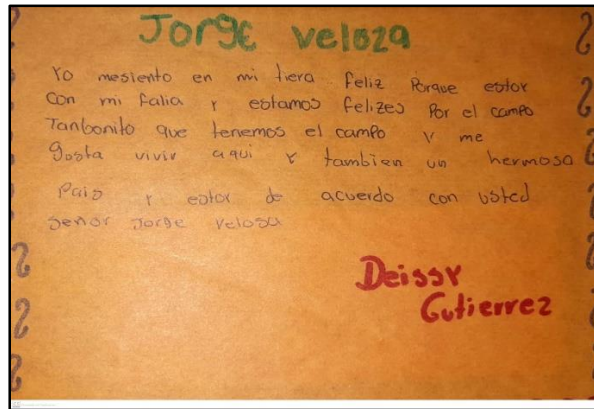 Jorge veloza
Yo mesiento en mi tiera feliz Porque estoy
Con mi falia y estamos felizes Por el campo
Tanbonito que tenemos el campo y me
gosta vivir aqui y tambien un hermoso
Pais y estoy de acuerdo con usted
senor Jorge velosa
Deissy
Gutierrez